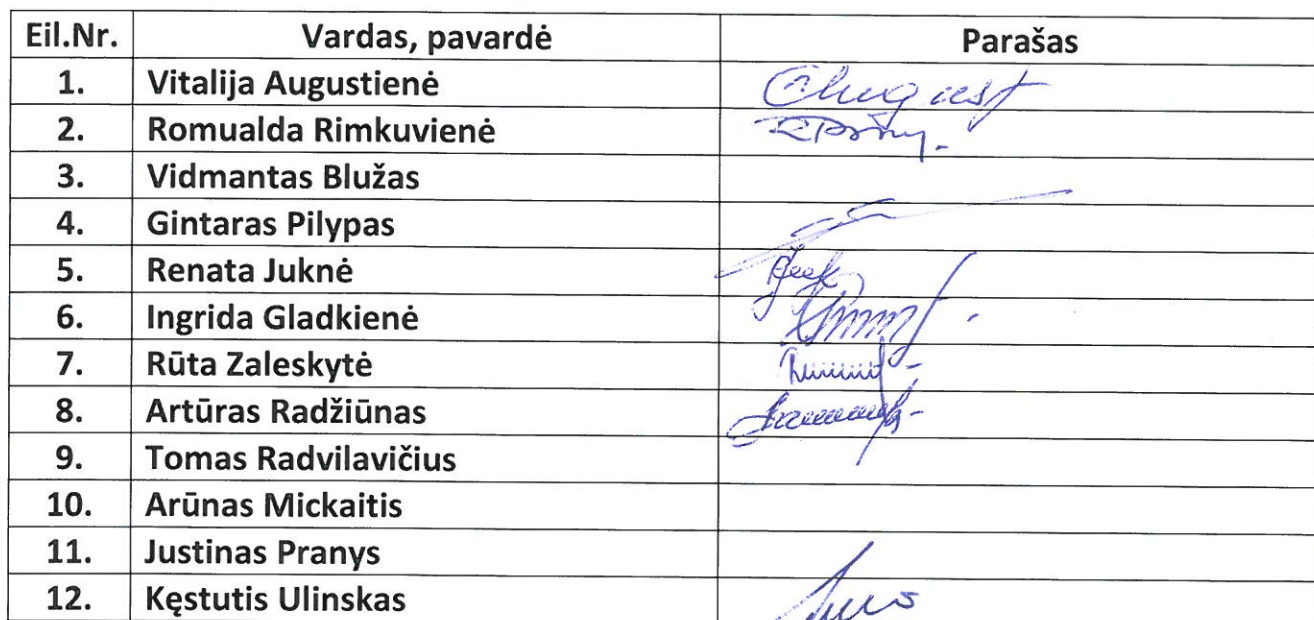 Eil.Nr. Vardas, pavardė Parašas
1. Vitalija Augustienė
2. Romualda Rimkuvienė
3. Vidmantas Blužas
4. Gintaras Pilypas
5. Renata Juknė
6. Ingrida Gladkienė
7. Rūta Zaleskytė
8. Artūras Radžiūnas
9. Tomas Radvilavičius
10. Arūnas Mickaitis
11. Justinas Pranys
12. Kęstutis Ulinskas